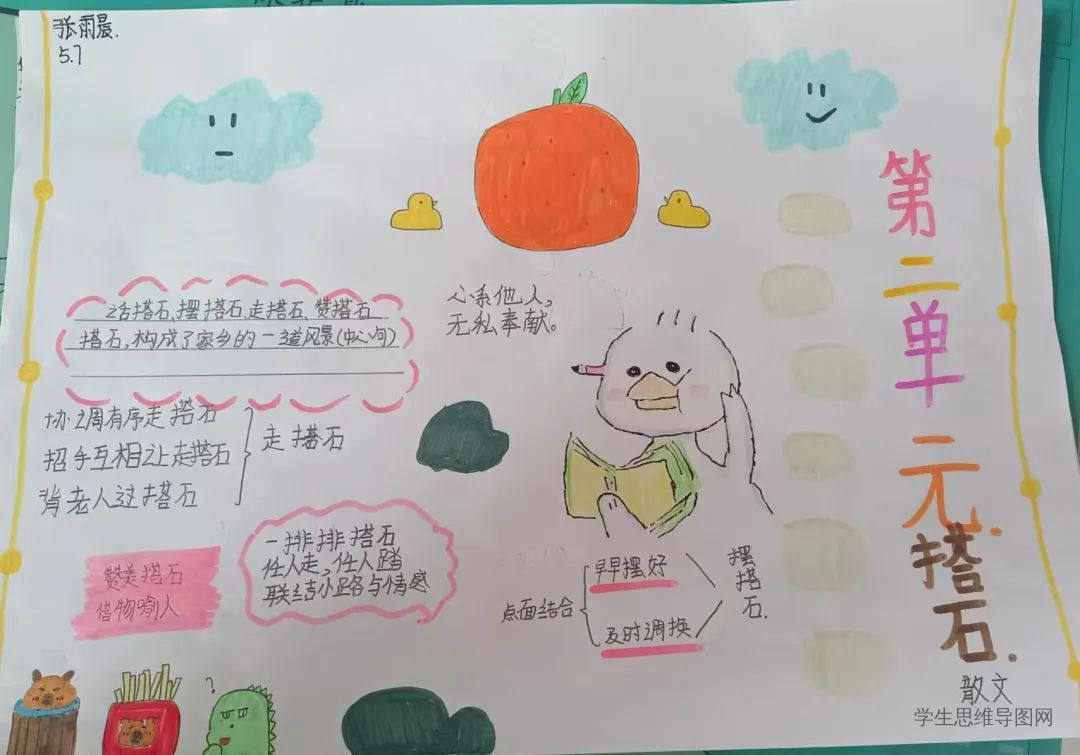 张雨晨.
5.7
第二单元.
搭石.
散文
话搭石、摆搭石、走搭石、赞搭石
搭石,构成了家乡的一道风景(中心句)
心系他人,
无私奉献。
协调有序走搭石
招手互相让走搭石
背老人过搭石
走搭石
一排排搭石
任人走,任人踏
联结小路与情感
赞美搭石
借物喻人
点面结合
早早摆好
及时调换
摆搭石.
?
学生思维导图网